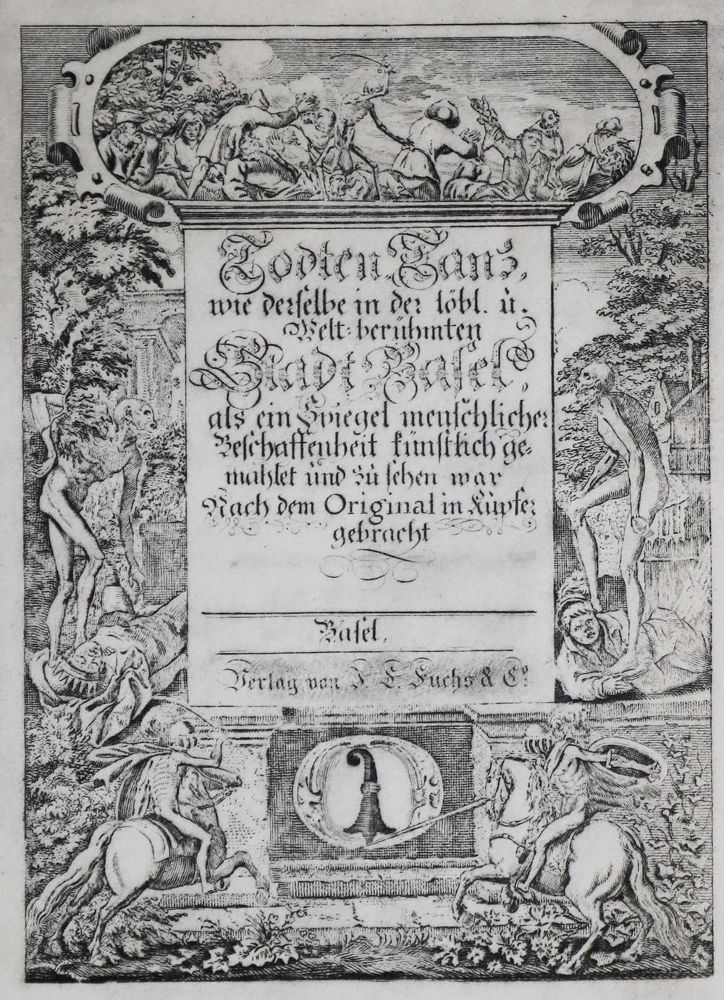 Todten-Tanz,
wie derselbe in der löbl. ù.
Welt-berühmten
Stadt Basel,
als ein Spiegel menschlicher
Beschaffenheit künstlich ge-
mahlet und zu sehen war
Nach dem Original in Kupfer
gebracht
Basel,
Verlag von J. E. Fuchs & Cº.